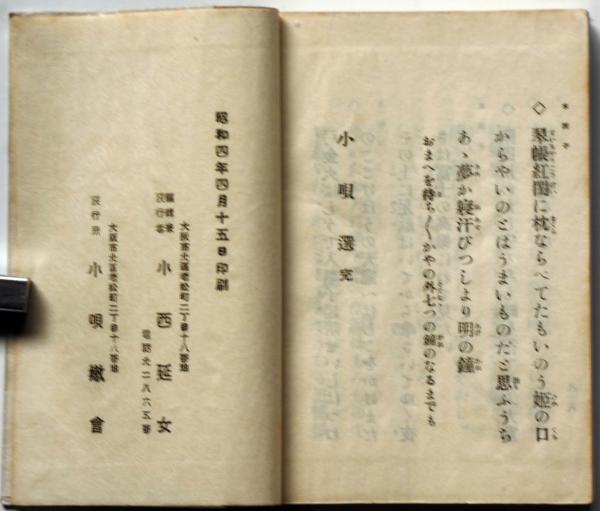 ◇翠帳紅閨に枕ならべてたもいのう姫の口
からやいのとはうまいものだと思ふうち
あゝ夢か寝汗びつしより明の鐘
おまへを待ち〳〵かやの外七つの鐘のなるまでも
小唄選 完
昭和四年四月十五日印刷
大阪市北區老松町二丁目十八番地
編輯兼
發行者 小西延女
電話北二八六五番
大阪市北區老松町二丁目十八番地
發行所 小唄
會